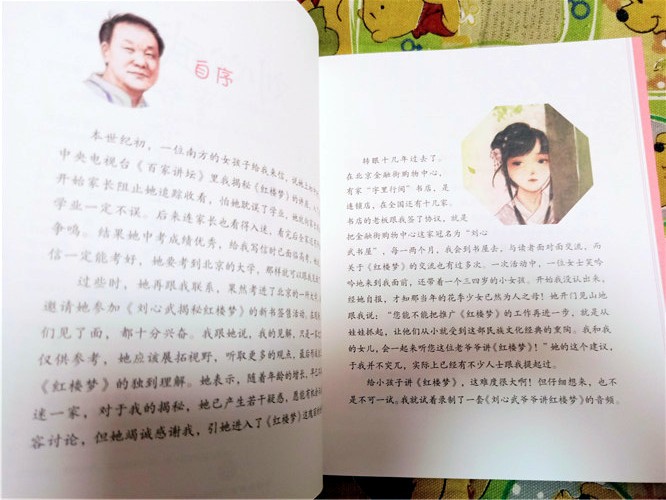 自序
本世纪初，一位南方的女孩子给我来信，说她上初中
中央电视台《百家讲坛》里我揭秘《红楼梦》的讲座，
开始家长阻止她追踪收看，怕她耽误了学业，她就向家长
学业一定不误。后来连家长也看得入迷，看完后全家还
争鸣。结果她中考成绩优秀，给我写信时已面临高考，她
信一定能考好，她要考到北京的大学，那样就可以跟我
过些时，她再跟我联系，果然考进了北京的一所大
邀请她参加《刘心武揭秘红楼梦》的新书签售活动，
们见了面，都十分兴奋。我跟她说，我的见解，只是一
仅供参考，她应该展拓视野，听取更多的观点，最后
《红楼梦》的独到理解。她表示，随着年龄的增长，
迷一家，对于我的揭秘，她已产生若干疑惑，恳能有机会
容讨论，但她竭诚感谢我，引她进入了《红楼梦》这
转眼十几年过去了。
在北京金融街购物中心，
有家“字里行间”书店，是
连锁店，在全国还有十几家。
书店的老板跟我签了协议，就是
把金融街购物中心这家冠名为“刘心
武书屋”，每一两个月，我会到书屋去，与读者面对面交流，而
关于《红楼梦》的交流也有过多次。一次活动中，一位女士笑吟
吟地来到我面前，还带着一个三四岁的小女孩。开始我没认出来，
经她自报，才知那当年的花季少女已然为人之母！她开门见山地
跟我说：“您能不能把推广《红楼梦》的工作再进一步，就是从
娃娃抓起，让他们从小就受到这部民族文化经典的熏陶。我和我
的女儿，会一起来听您这位老爷爷讲《红楼梦》！”她的这个建议，
于我并不突兀，实际上已经有不少人士跟我提起过。
给小孩子讲《红楼梦》，这难度很大啊！但仔细想来，也不
是不可一试。我就试着录制了一套《刘心武爷爷讲红楼梦》的音频。